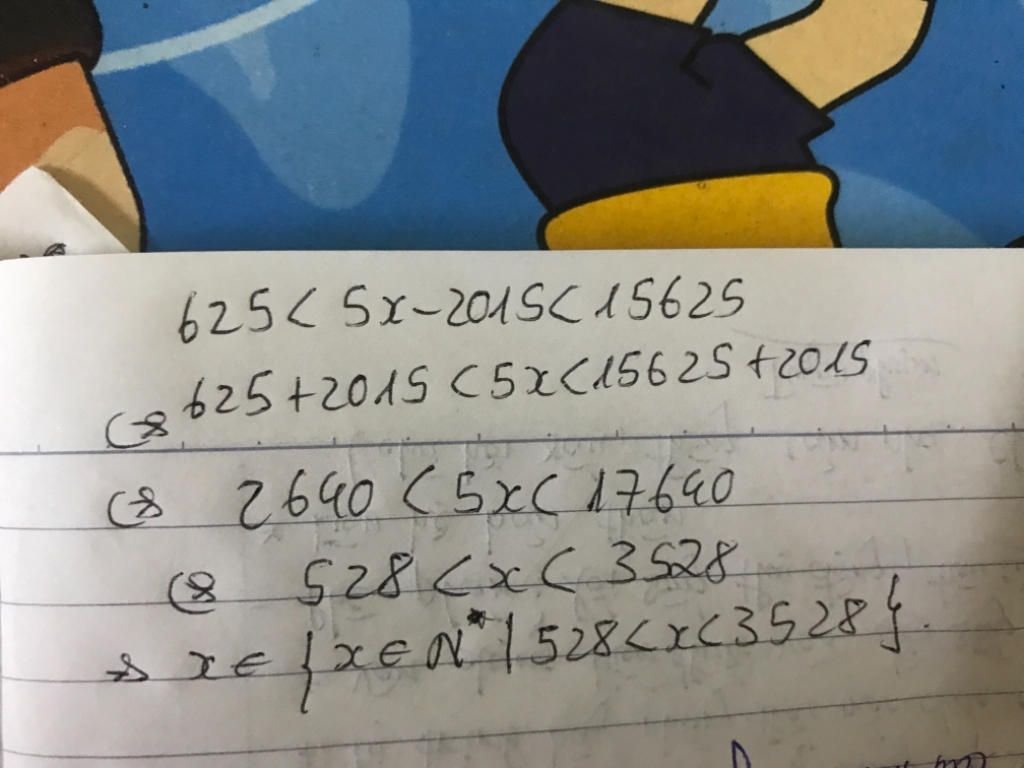 625 < 5x - 2015 < 15625
⇔ 625 + 2015 < 5x < 15625 + 2015
⇔ 2640 < 5x < 17640
⇔ 528 < x < 3528
⇒ x ∈ {x ∈ N* | 528 < x < 3528}.